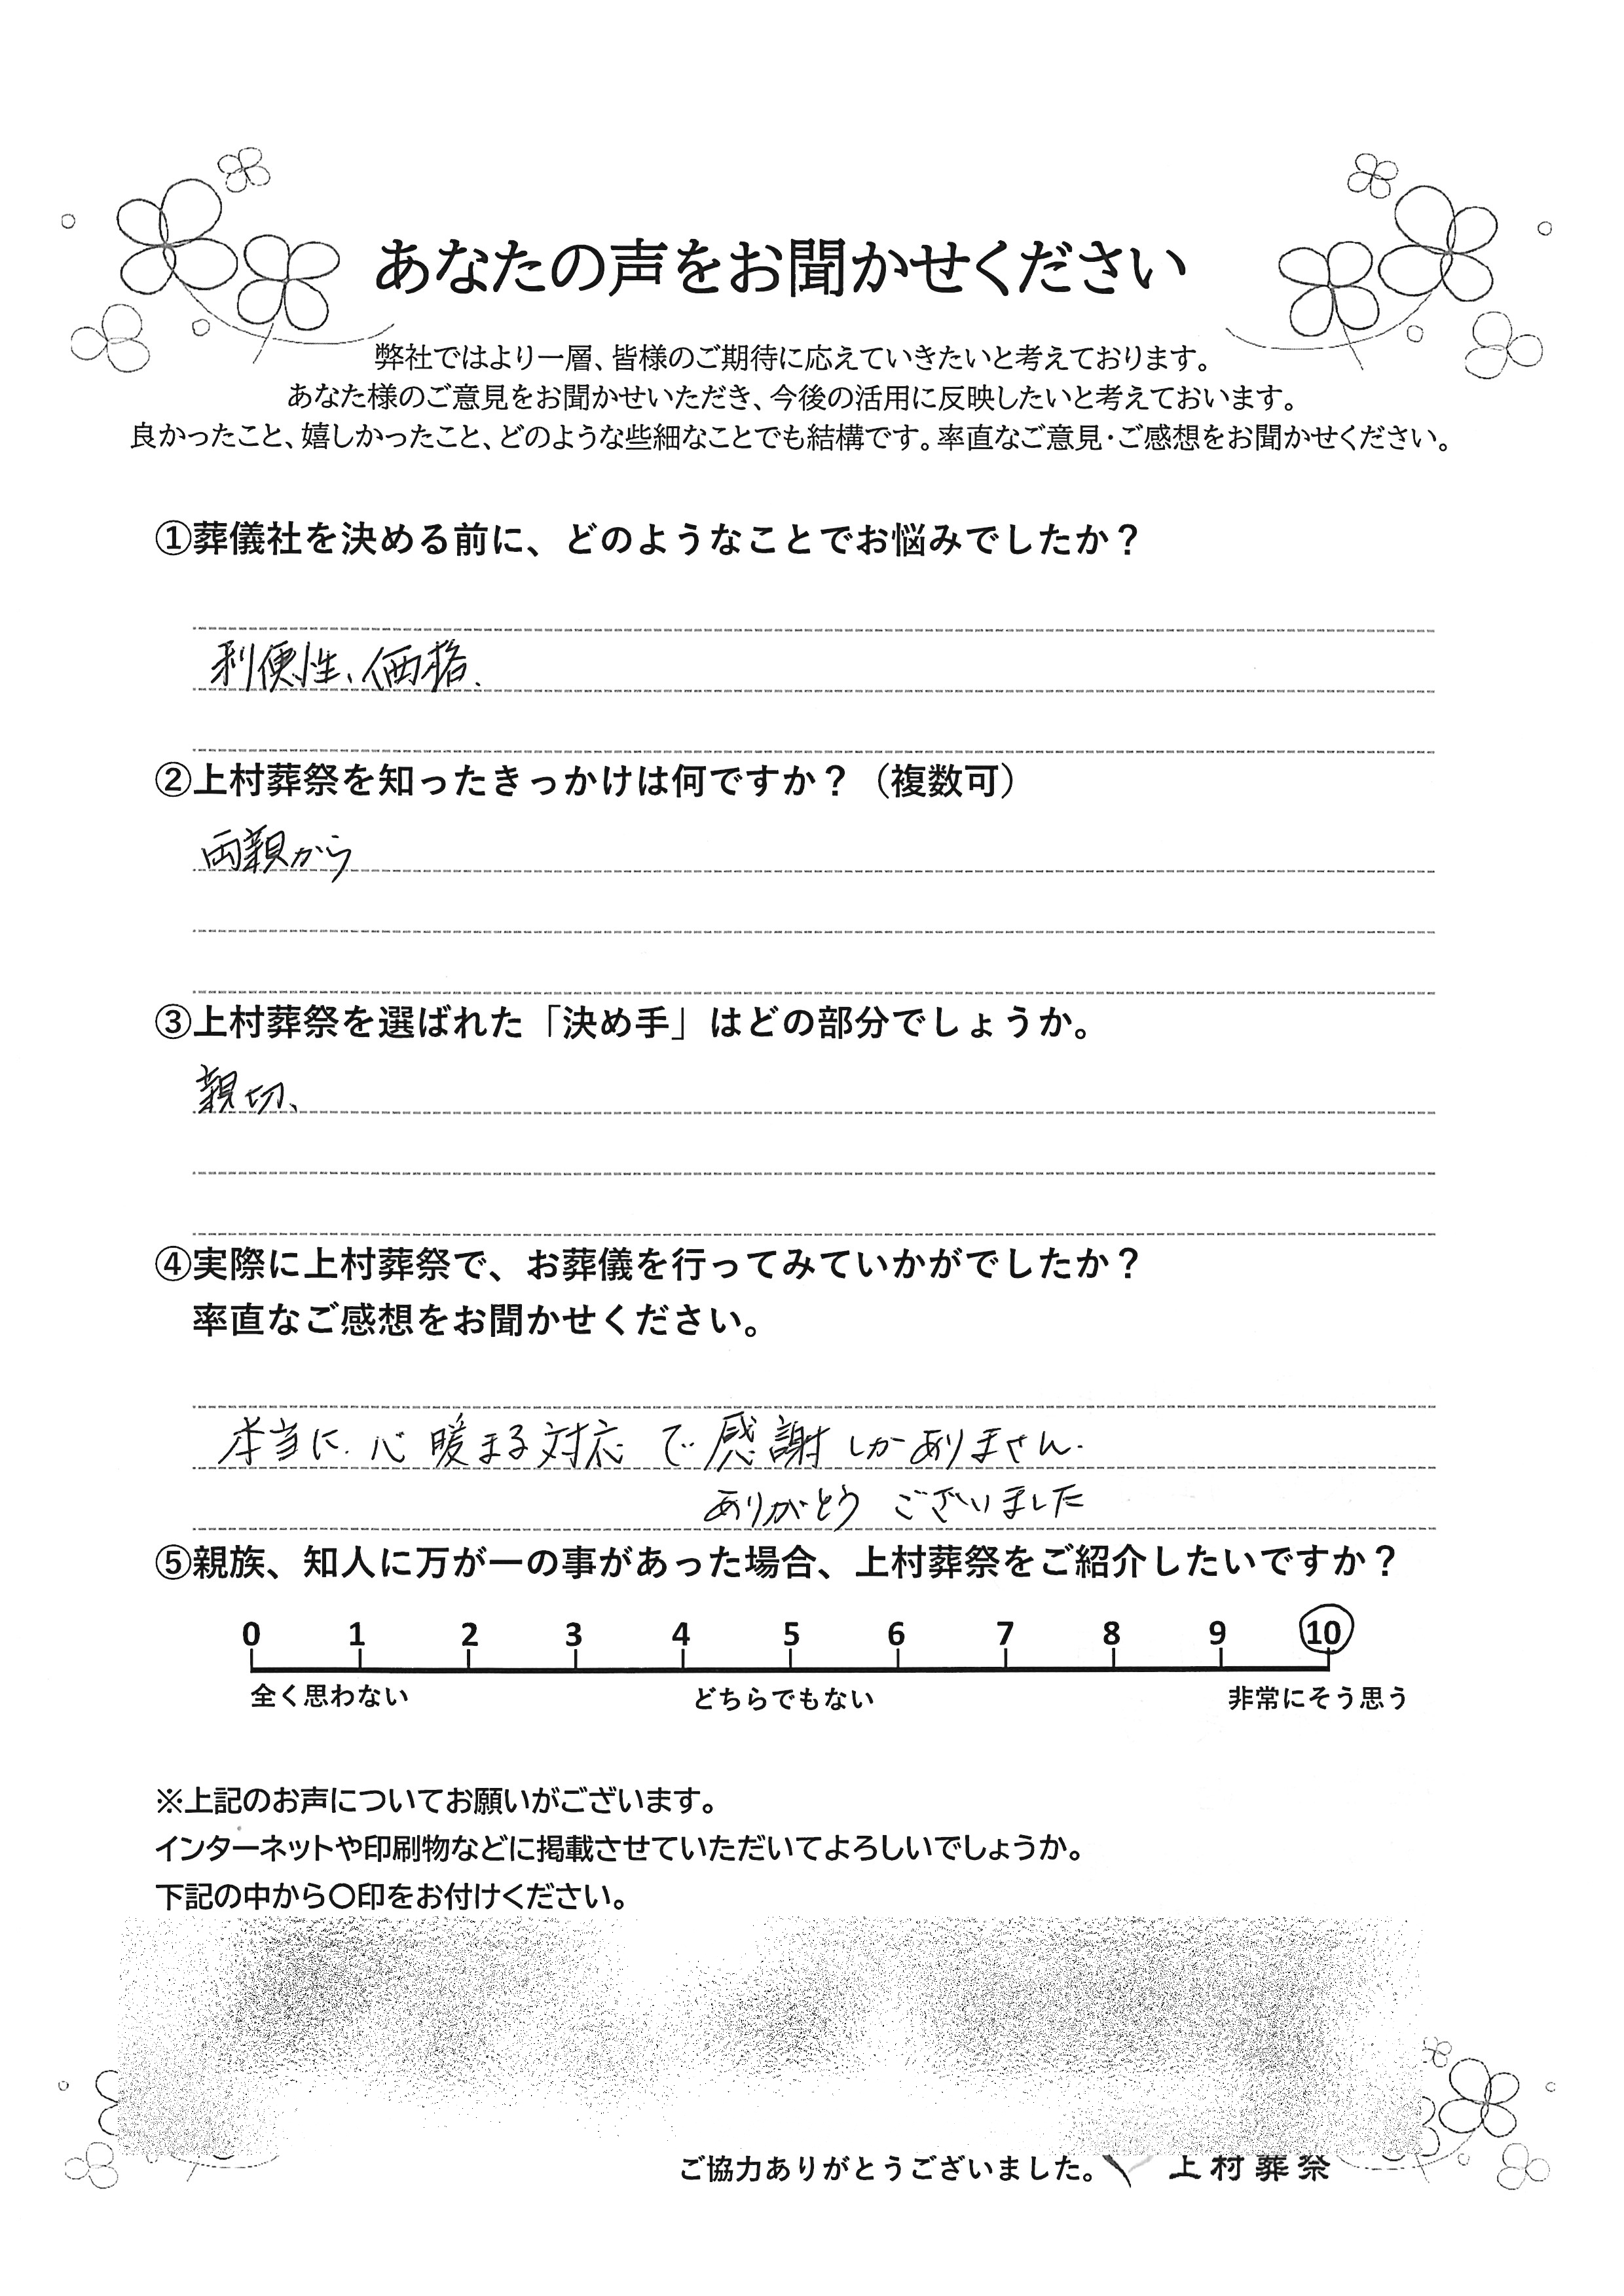 あなたの声をお聞かせください
弊社ではより一層、皆様のご期待に応えていきたいと考えております。
あなた様のご意見をお聞かせいただき、今後の活用に反映したいと考えておいます。
良かったこと、嬉しかったこと、どのような些細なことでも結構です。率直なご意見・ご感想をお聞かせください。
①葬儀社を決める前に、どのようなことでお悩みでしたか？
利便性、価格.
②上村葬祭を知ったきっかけは何ですか？（複数可）
両親から
③上村葬祭を選ばれた「決め手」はどの部分でしょうか。
親切、
④実際に上村葬祭で、お葬儀を行ってみていかがでしたか？
率直なご感想をお聞かせください。
本当に.心暖まる対応で感謝しかありません.
ありがとうございました
⑤親族、知人に万が一の事があった場合、上村葬祭をご紹介したいですか？
0 1 2 3 4 5 6 7 8 9 10
全く思わない どちらでもない 非常にそう思う
※上記のお声についてお願いがございます。
インターネットや印刷物などに掲載させていただいてよろしいでしょうか。
下記の中から〇印をお付けください。
ご協力ありがとうございました。 上村葬祭